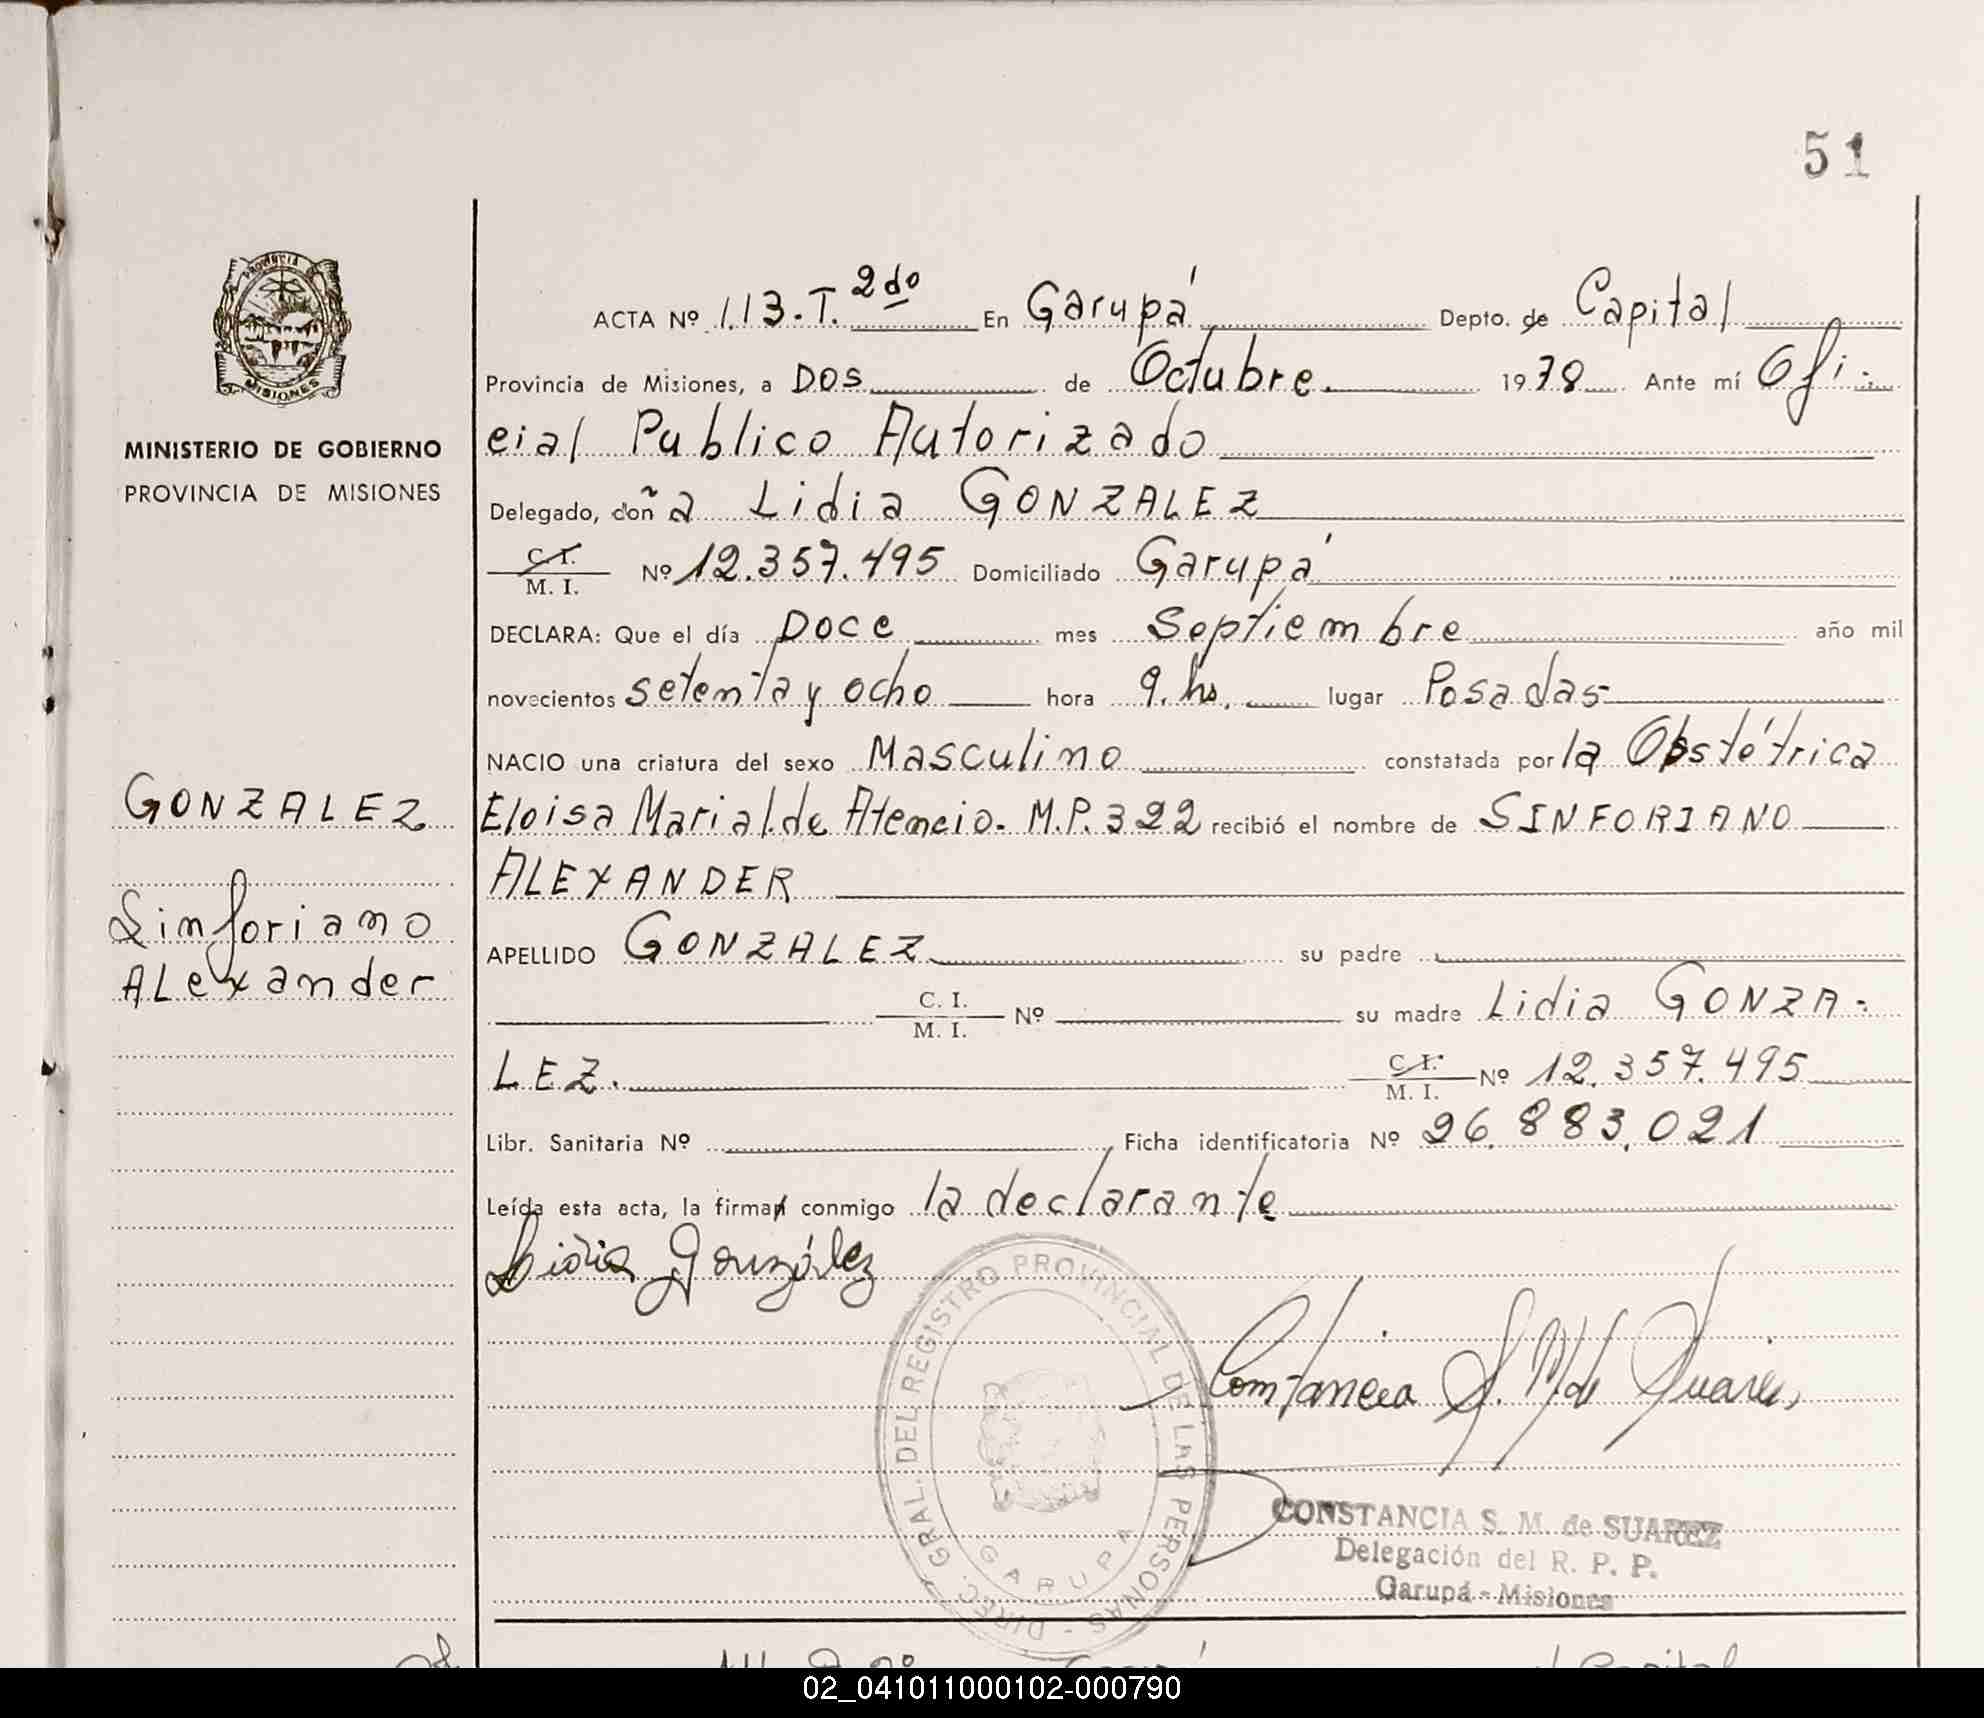 51
PROVINCIA DE
MISIONES
MINISTERIO DE GOBIERNO
PROVINCIA DE MISIONES
GONZALEZ
Sinforiano
ALexander
ACTA Nº 113.T. 2do En Garupá Depto. de Capital
Provincia de Misiones, a DOS de Octubre. 1978 Ante mí Ofi-
cial Publico Autorizado
Delegado, doña Lidia GONZALEZ
C. I.
M. I. Nº 12.357.495 Domiciliado Garupá
DECLARA: Que el día Doce mes Septiembre año mil
novecientos setenta y ocho hora 9.hs. lugar Posadas
NACIO una criatura del sexo Masculino constatada por la Obstétrica
Eloisa Marial.de Atencio. M.P. 322 recibió el nombre de SINFORIANO
ALEXANDER
APELLIDO GONZALEZ su padre
C. I.
M. I. Nº su madre Lidia GONZA-
LEZ. C. I.
M. I. Nº 12.357.495
Libr. Sanitaria Nº Ficha identificatoria Nº 26.883.021
Leída esta acta, la firman conmigo la declarante
Lidia González
DIREC. GRAL. DEL REGISTRO PROVINCIAL DE LAS PERSONAS -
GARUPA
Constancia S. M. de Suarez
CONSTANCIA S. M. de SUAREZ
Delegación del R. P. P.
Garupá - Misiones
02_041011000102-000790